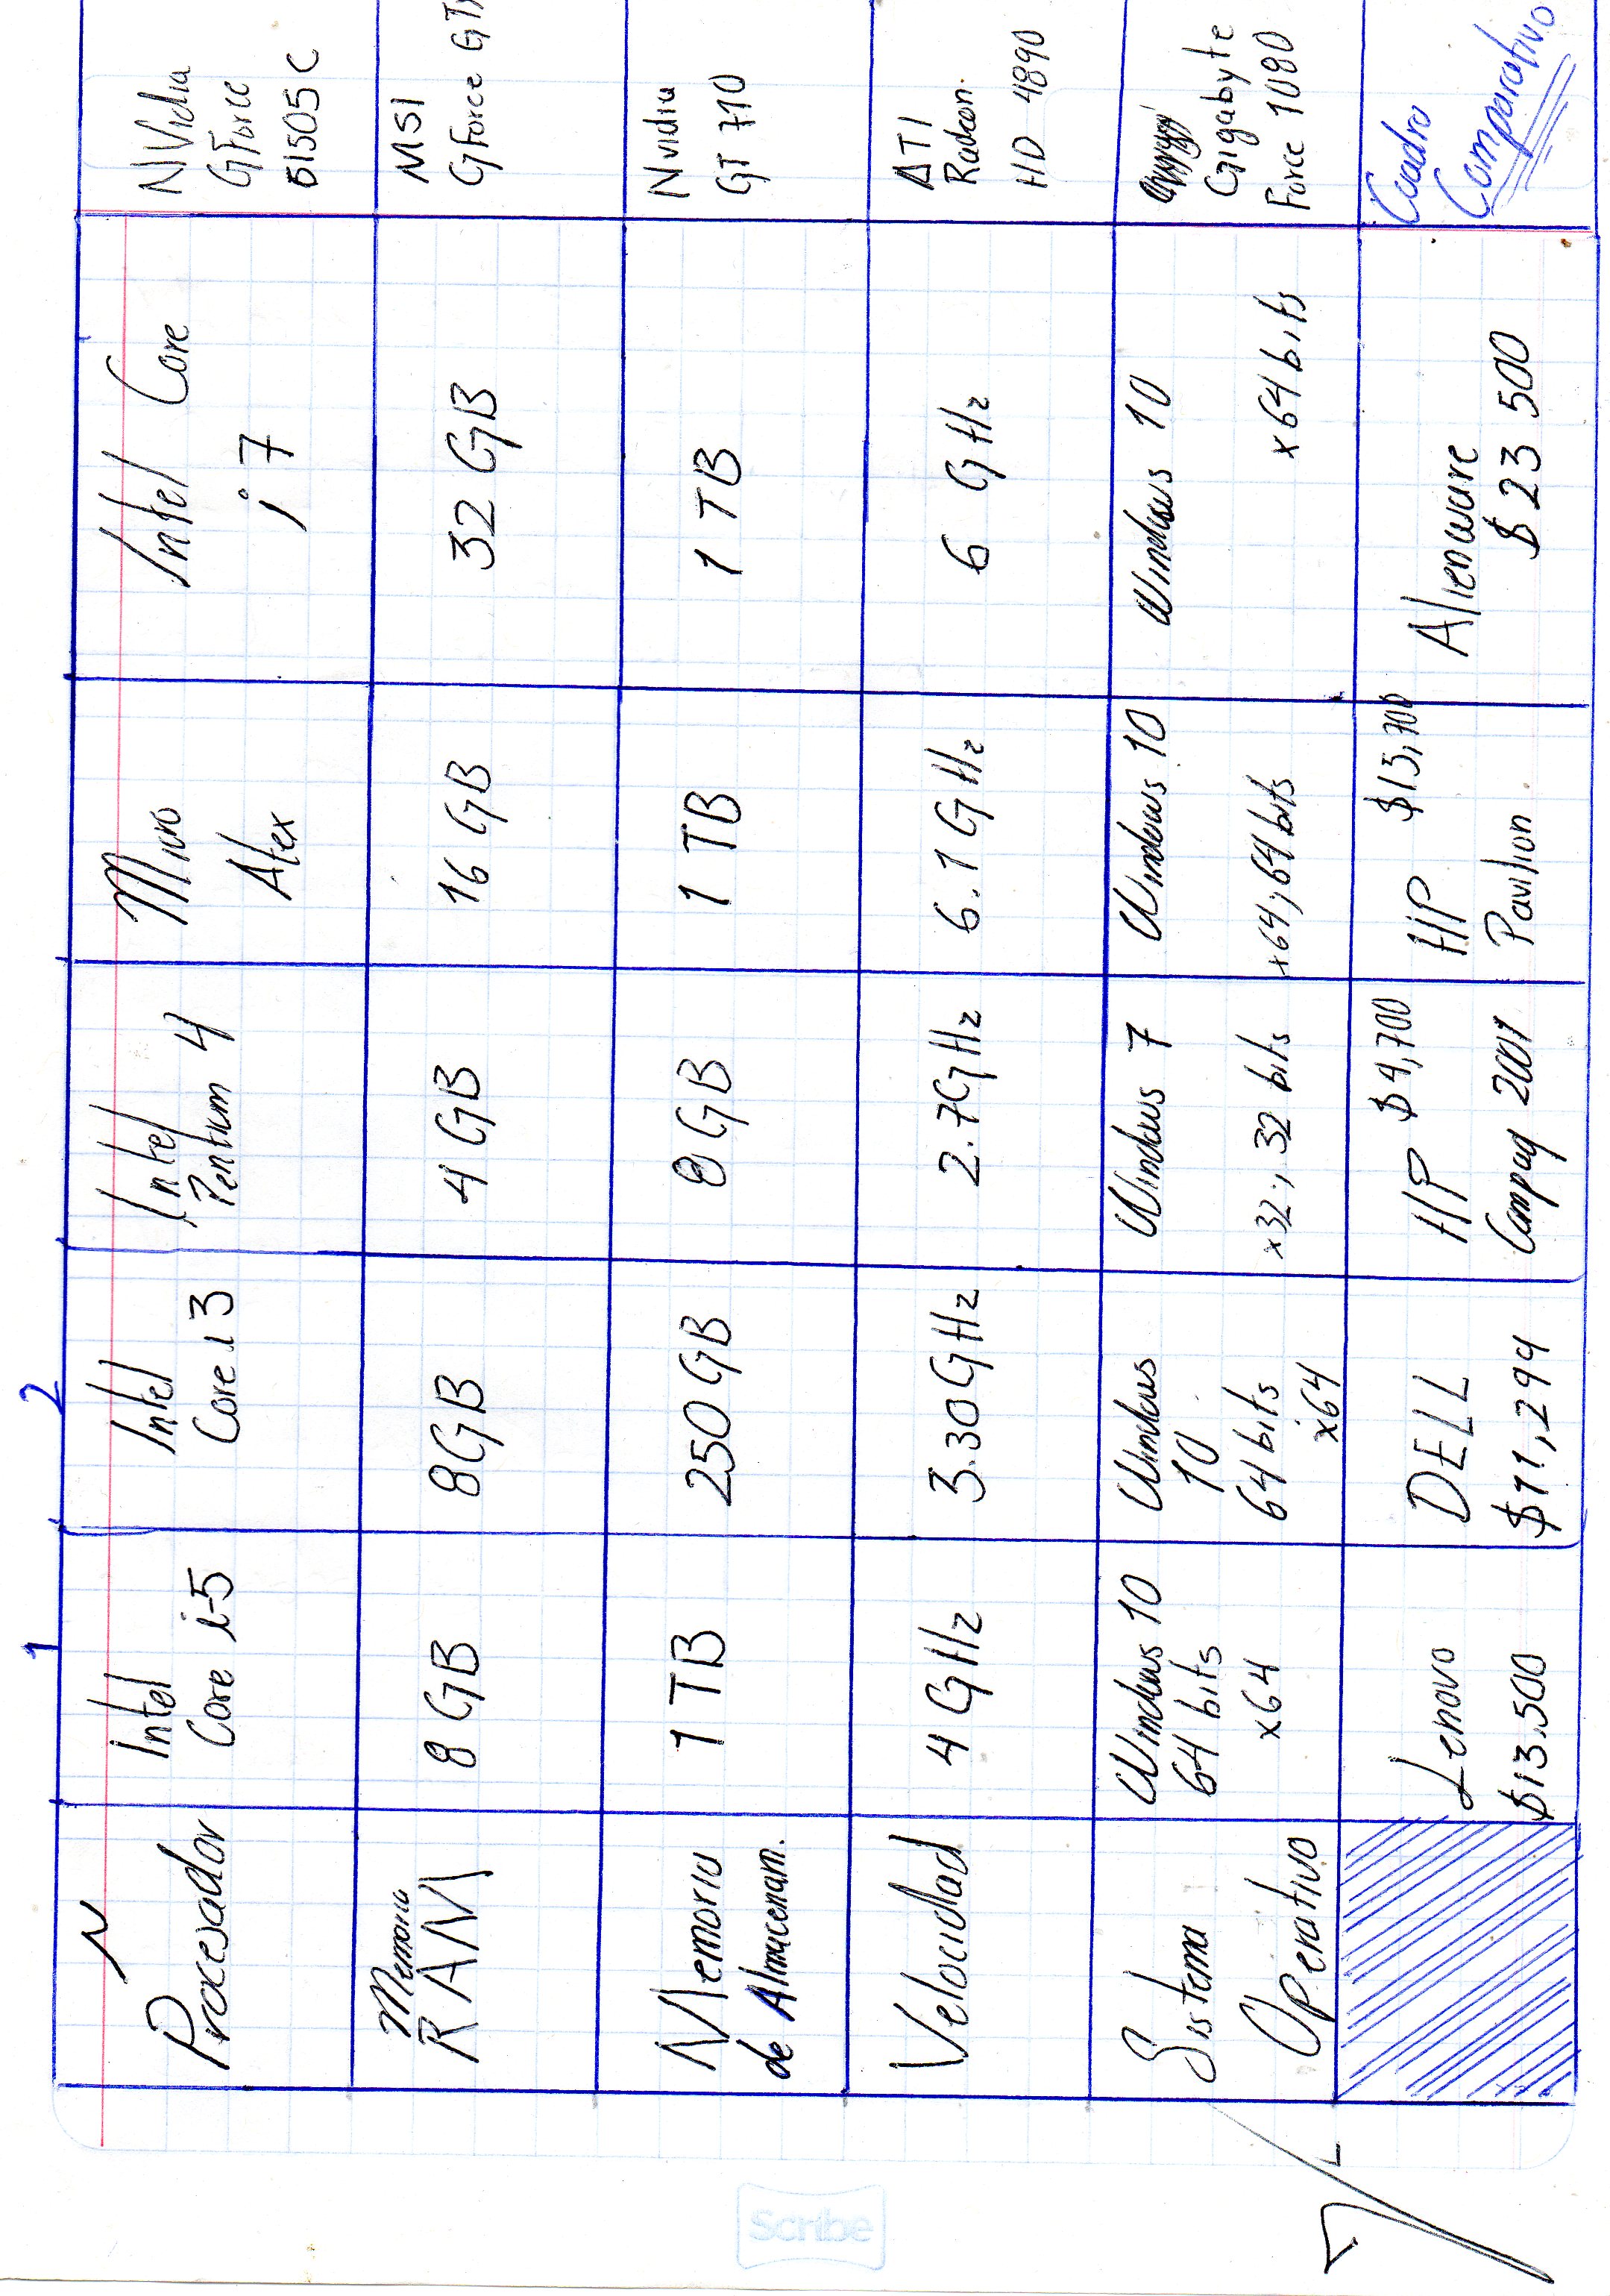 1
2
N
Procesador
Intel
Core i-5
Intel
Core i3
Intel
Pentium 4
Micro
Atex
Intel Core
i7
NVidia
GForce
61505C
Memoria
RAM
8 GB
8GB
4 GB
16 GB
32 GB
MSI
GForce
Memoria
de Almacenam.
1 TB
250 GB
8 GB
1 TB
1 TB
Nvidia
GT 710
Velocidad
4 GHz
3.30GHz
2.7GHz
6.1 GHz
6 GHz
ATI
Radeon
HD 4890
Sistema
Operativo
Windows 10
64 bits
x64
Windows
10
64 bits
x64
Windows 7
x32, 32 bits
Windows 10
x64, 64 bits
Windows 10
x64 bits
Gigabyte
Force 1080
Lenovo
$13.500
DELL
$11,294
HP $4,700
Compaq 2001
HP $15,700
Pavilion
Alienware
$23 500
Cuadro
Comparativo
Scribe